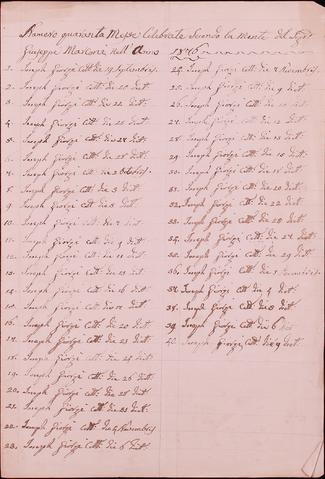 Numero quaranta Messe Celebrate secondo la mente del Sigr
Giuseppe Marconi nell'Anno 1876
1. Joseph Giorgi Cott. die 19 Septembris.
2. Joseph Giorgi Cott. die 20 dict.
3. Joseph Giorgi Cott. die 22 dict.
4. Joseph Giorgi Cott. die 25 dict.
5. Joseph Giorgi Cott. die 27 dict.
6. Joseph Giorgi Cott. die 28 dict.
7. Joseph Giorgi Cott. die 2 Octobris.
8. Joseph Giorgi Cott. die 3 dict.
9. Joseph Giorgi Cott. die dict.
10. Joseph Giorgi Cott. die dict
11. Joseph Giorgi Cott. die 9 dict.
12. Joseph Giorgi Cott. die 11 dict.
13. Joseph Giorgi Cott. die 13 dict.
14. Joseph Giorgi Cott. die 16 dict
15. Joseph Giorgi Cott. die dict
16. Joseph Giorgi Cott. die 20 dict.
17. Joseph Giorgi Cott. die 23 dict.
18. Joseph Giorgi Cott. die 24 dict.
19. Joseph Giorgi Cott. die 26 dict.
20. Joseph Giorgi Cott. die 28 dict.
21. Joseph Giorgi Cott. die 31 dict.
22. Joseph Giorgi Cott. die 4 Novembris
23. Joseph Giorgi Cott. die 6 dict.
24. Joseph Giorgi Cott. die Novembris.
25. Joseph Giorgi Cott. die 9 dict.
26. Joseph Giorgi Cott. die dict.
27. Joseph Giorgi Cott. die dict.
28. Joseph Giorgi Cott. die dict.
29. Joseph Giorgi Cott. die 16 dict.
30. Joseph Giorgi Cott. die 18 dict.
31. Joseph Giorgi Cott. die 20 dict.
32. Joseph Giorgi Cott. die 22 dict.
33. Joseph Giorgi Cott. die dict.
34. Joseph Giorgi Cott. die 27 dict.
35. Joseph Giorgi Cott. die 29 dict.
36. Joseph Giorgi Cott. die
37. Joseph Giorgi Cott. die 4 dict.
38. Joseph Giorgi Cott. die dict.
39. Joseph Giorgi Cott. die 6 dict
40. Joseph Giorgi Cott. die 9 dict.